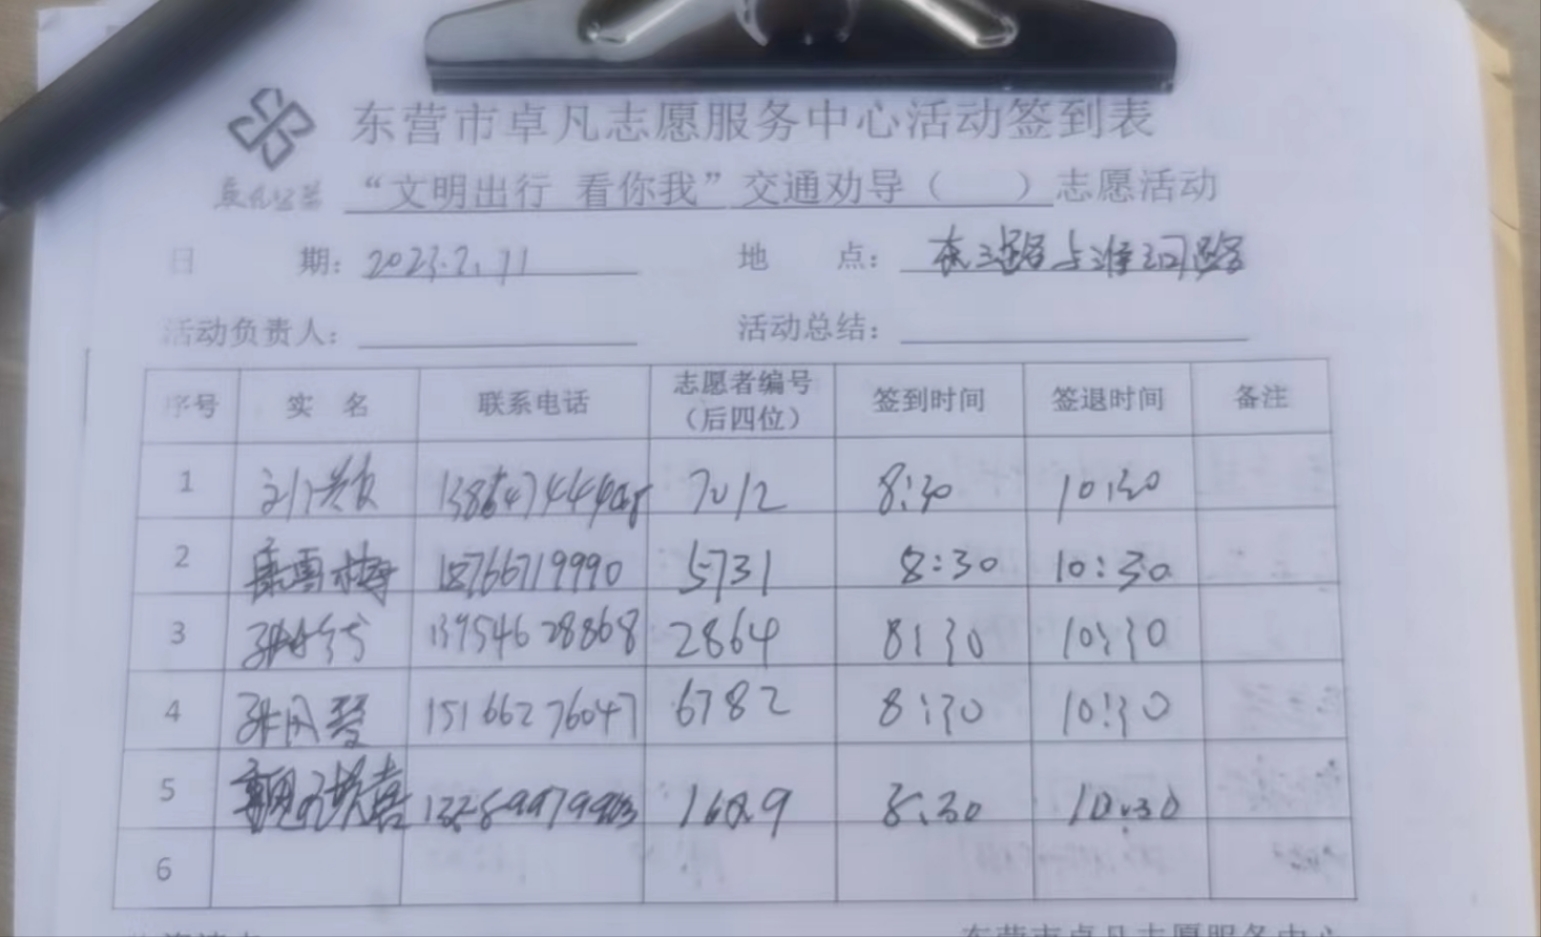 东营市卓凡志愿服务中心活动签到表
卓凡公益 “文明出行 看你我”交通劝导（ ）志愿活动
日 期：2023.2.11 地 点：东三路与淮河路
活动负责人： 活动总结：
序号 实 名 联系电话 志愿者编号（后四位） 签到时间 签退时间 备注
1 7012 8:30 10:30
2 康雪梅 18766719990 5731 8:30 10:30
3 13954628868 2864 8:30 10:30
4 15166276047 6782 8:30 10:30
5 8:30 10:30
6
东营市卓凡志愿服务中心